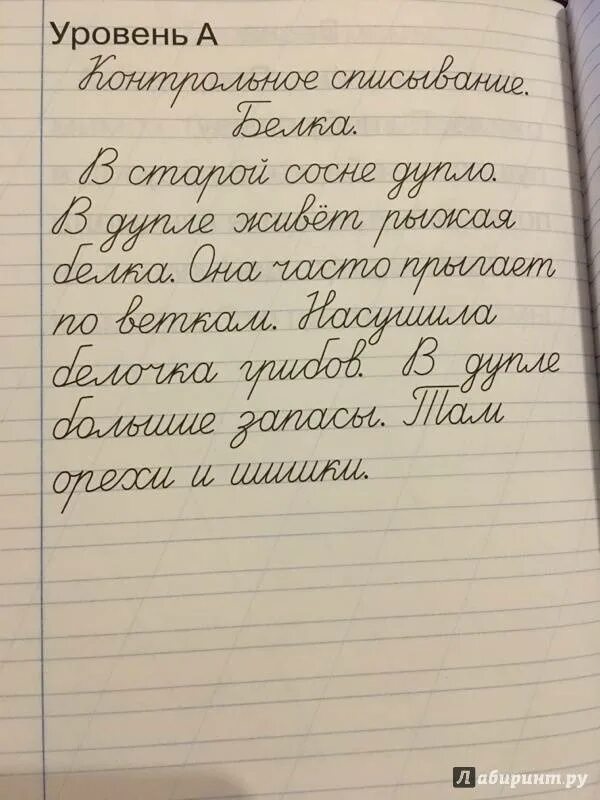 Уровень А
Контрольное списывание.
Белка.
В старой сосне дупло.
В дупле живёт рыжая
белка. Она часто прыгает
по веткам. Насушила
белочка грибов. В дупле
большие запасы. Там
орехи и шишки.
Лабиринт.ру